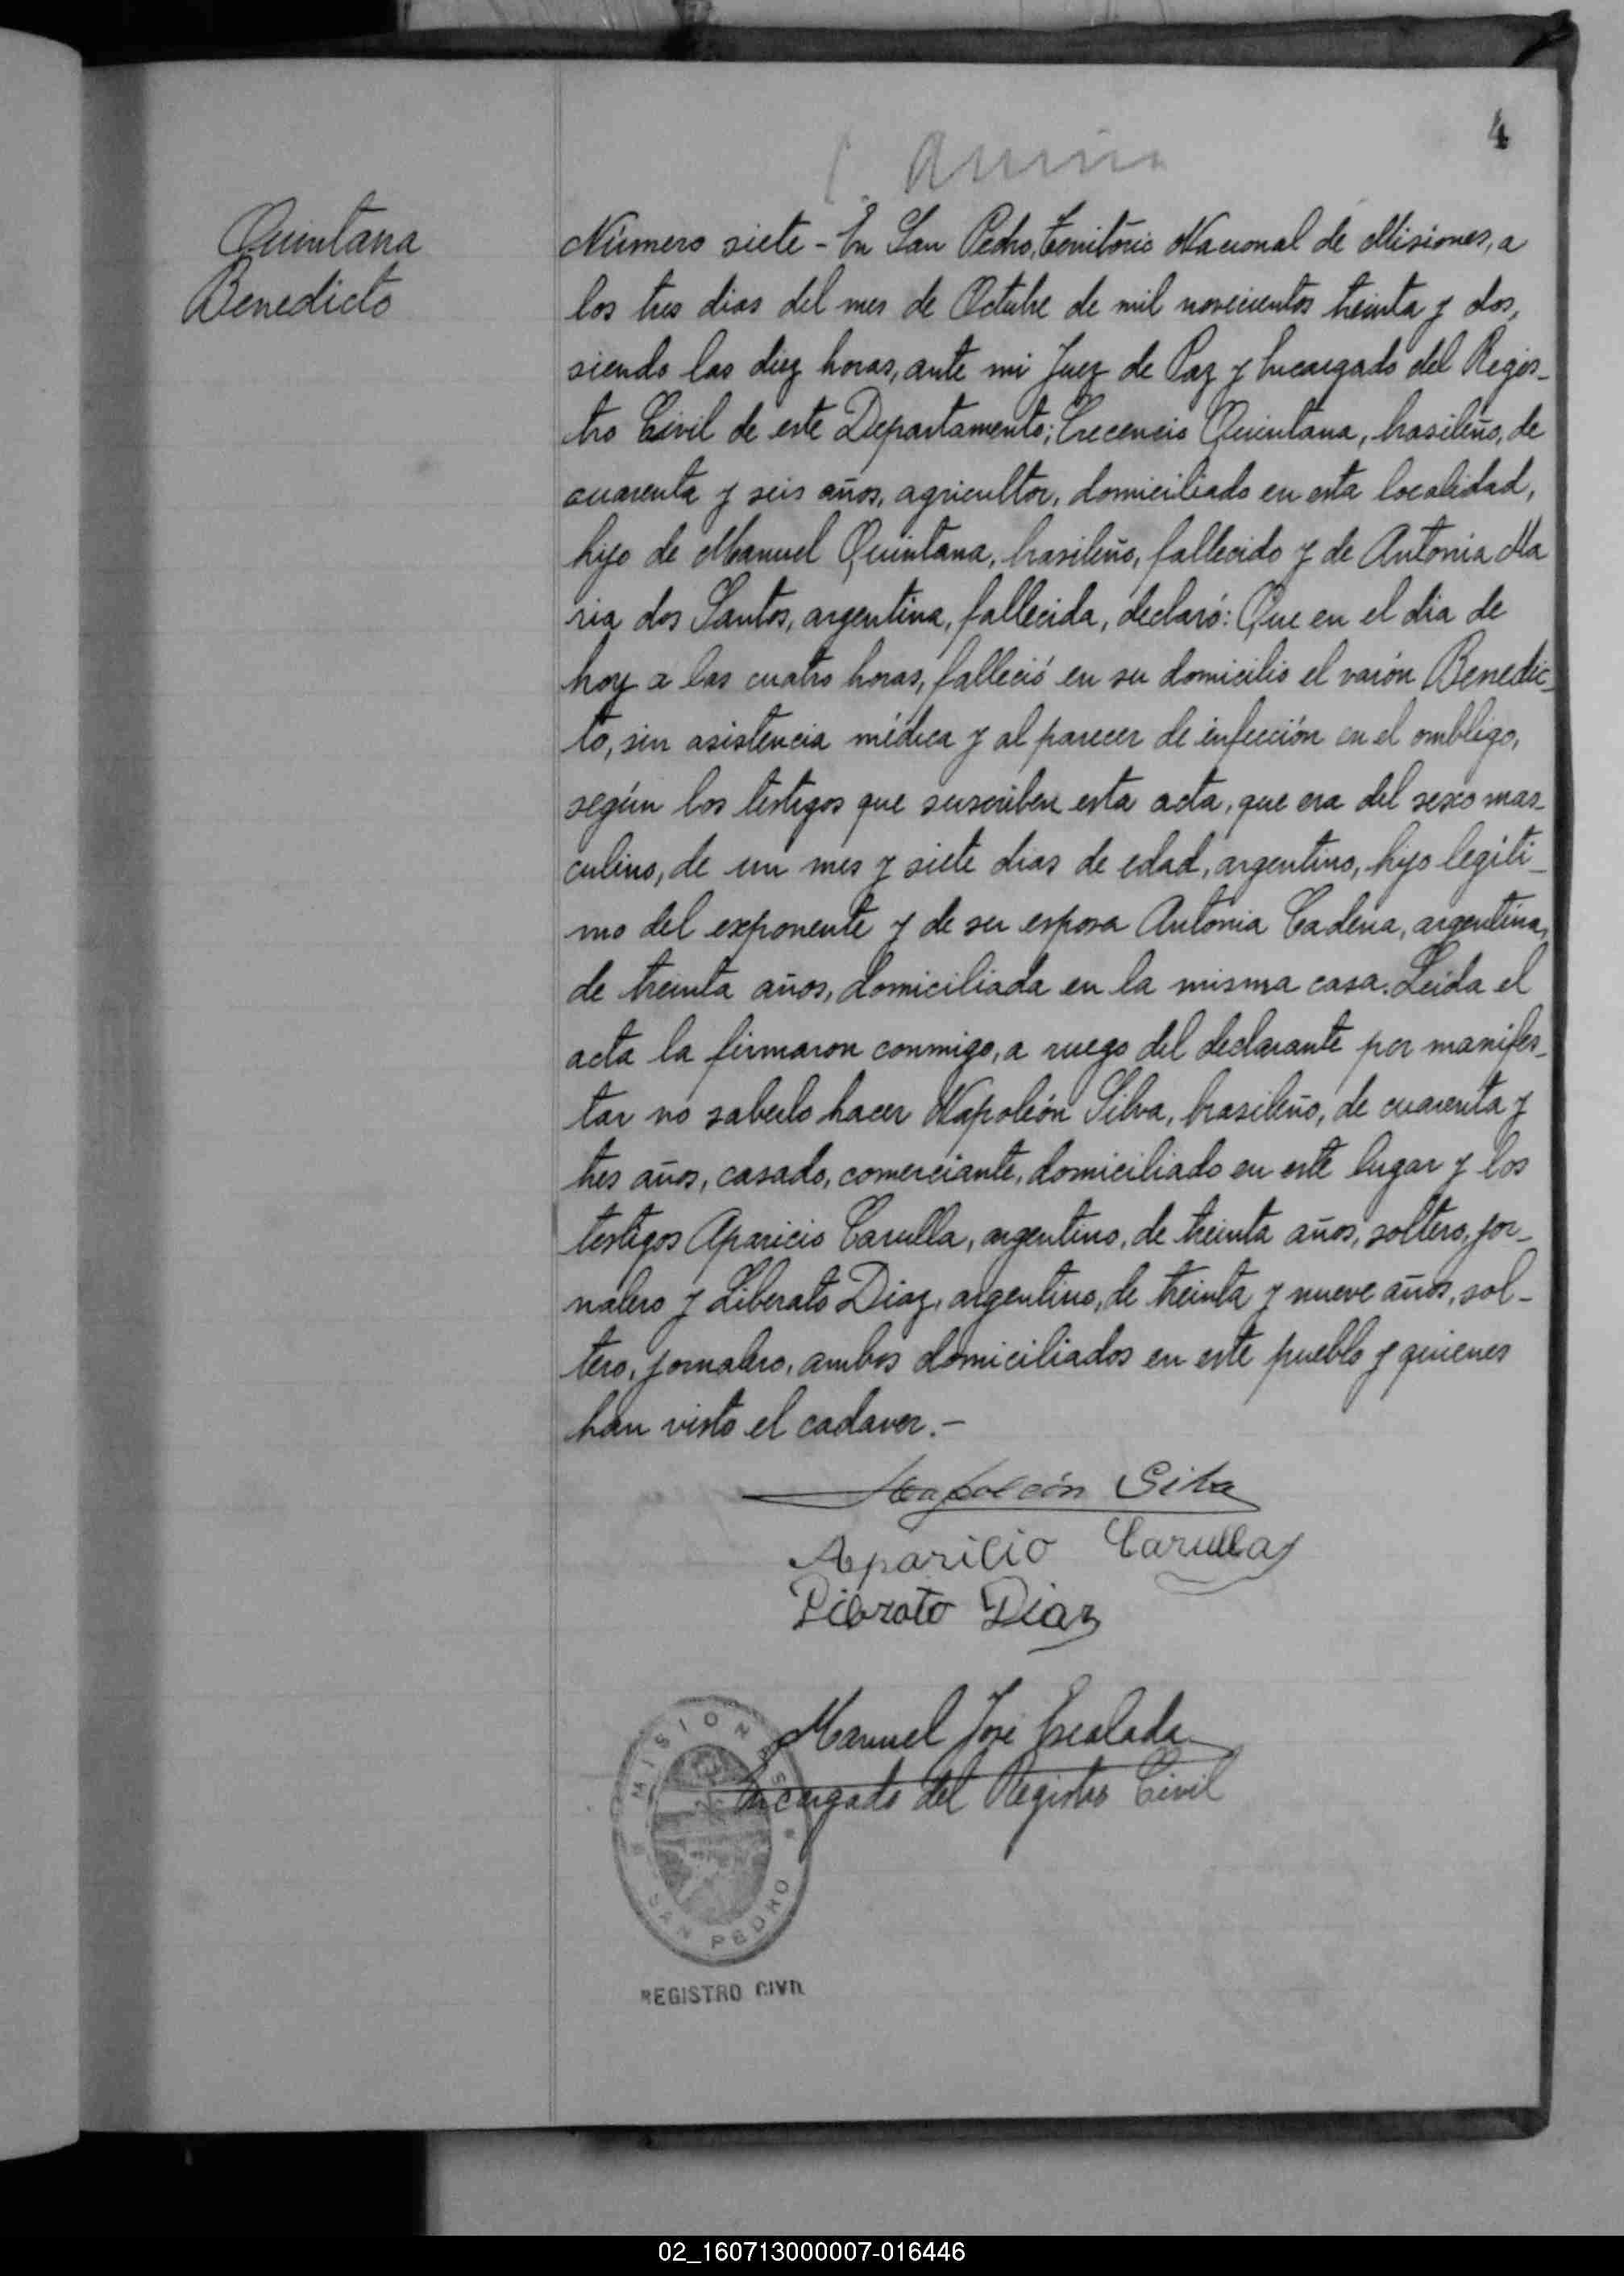 4
Quintana
Benedicto
Número siete - En San Pedro, Territorio Nacional de Misiones, a
los tres dias del mes de Octubre de mil novecientos treinta y dos,
siendo las diez horas, ante mi Juez de Paz y Encargado del Regis-
tro Civil de este Departamento; Crecencio Quintana, brasileño, de
cuarenta y seis años, agricultor, domiciliado en esta localidad,
hijo de Manuel Quintana, brasileño, fallecido y de Antonia Ma
ria dos Santos, argentina, fallecida, declaró: Que en el dia de
hoy a las cuatro horas, falleció en su domicilio el varón Benedic-
to, sin asistencia médica y al parecer de infección en el ombligo,
según los testigos que suscriben esta acta, que era del sexo mas-
culino, de un mes y siete dias de edad, argentino, hijo legiti-
mo del exponente y de su esposa Antonia Cadena, argentina,
de treinta años, domiciliada en la misma casa. Leida el
acta la firmaron conmigo, a ruego del declarante por manifes-
tar no saberlo hacer Napoleón Silva, brasileño, de cuarenta y
tres años, casado, comerciante, domiciliado en este lugar y los
testigos Aparicio Carulla, argentino, de treinta años, soltero, jor-
nalero y Liberato Diaz, argentino, de treinta y nueve años, sol-
tero, jornalero, ambos domiciliados en este pueblo y quienes
han visto el cadaver.-
Napoleón Silva
Aparicio Carulla
Librato Diaz
Manuel José Escalada
Encargado del Registro Civil
MISIONES
SAN PEDRO
REGISTRO CIVIL
02_160713000007-016446